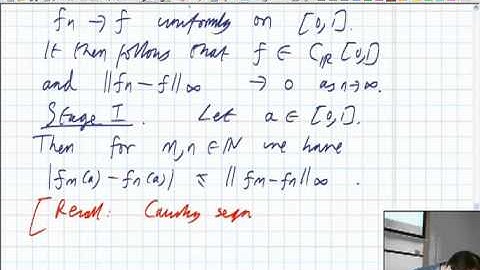 fn → f uniformly on [0,1].
It then follows that f ∈ C_ℝ[0,1]
and ‖fn − f‖∞ → 0 as n→∞.
Stage I. Let a ∈ [0,1].
Then for m,n ∈ ℕ we have
|fm(a) − fn(a)| ≤ ‖fm − fn‖∞ .
[Recall: Cauchy seqn